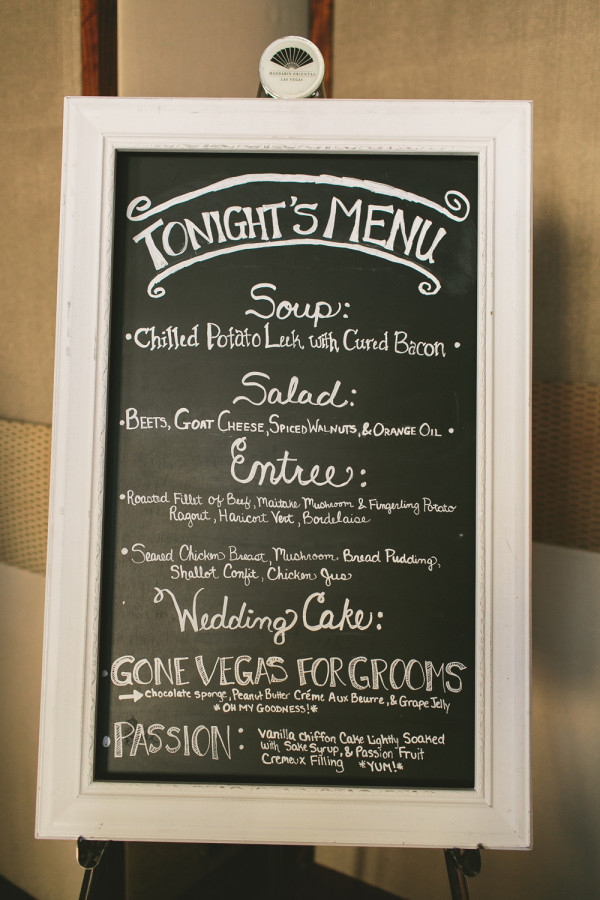 MANDARIN ORIENTAL
LAS VEGAS
TONIGHT'S MENU
Soup:
• Chilled Potato Leek, with Cured Bacon •
Salad:
• BEETS, GOAT CHEESE, SPICED WALNUTS, & ORANGE OIL •
Entree:
• Roasted Fillet of Beef, Maitake Mushroom & Fingerling Potato
Ragout, Haricort Vert, Bordelaise
• Seared Chicken Breast, Mushroom Bread Pudding,
Shallot Confit, Chicken Jus
Wedding Cake:
GONE VEGAS FOR GROOMS
→ chocolate sponge, Peanut Butter Créme Aux Beurre, & Grape Jelly
* OH MY GOODNESS! *
PASSION: Vanilla chiffon Cake Lightly Soaked
with Sake Syrup, & Passion Fruit
Cremeux Filling *YUM!*